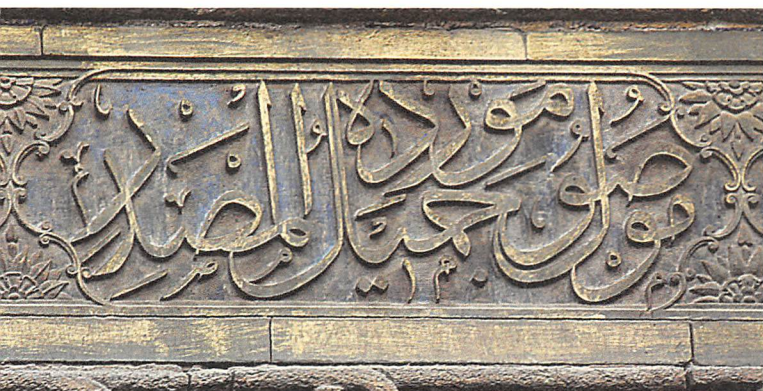 فوصول مورده جميل المصدر